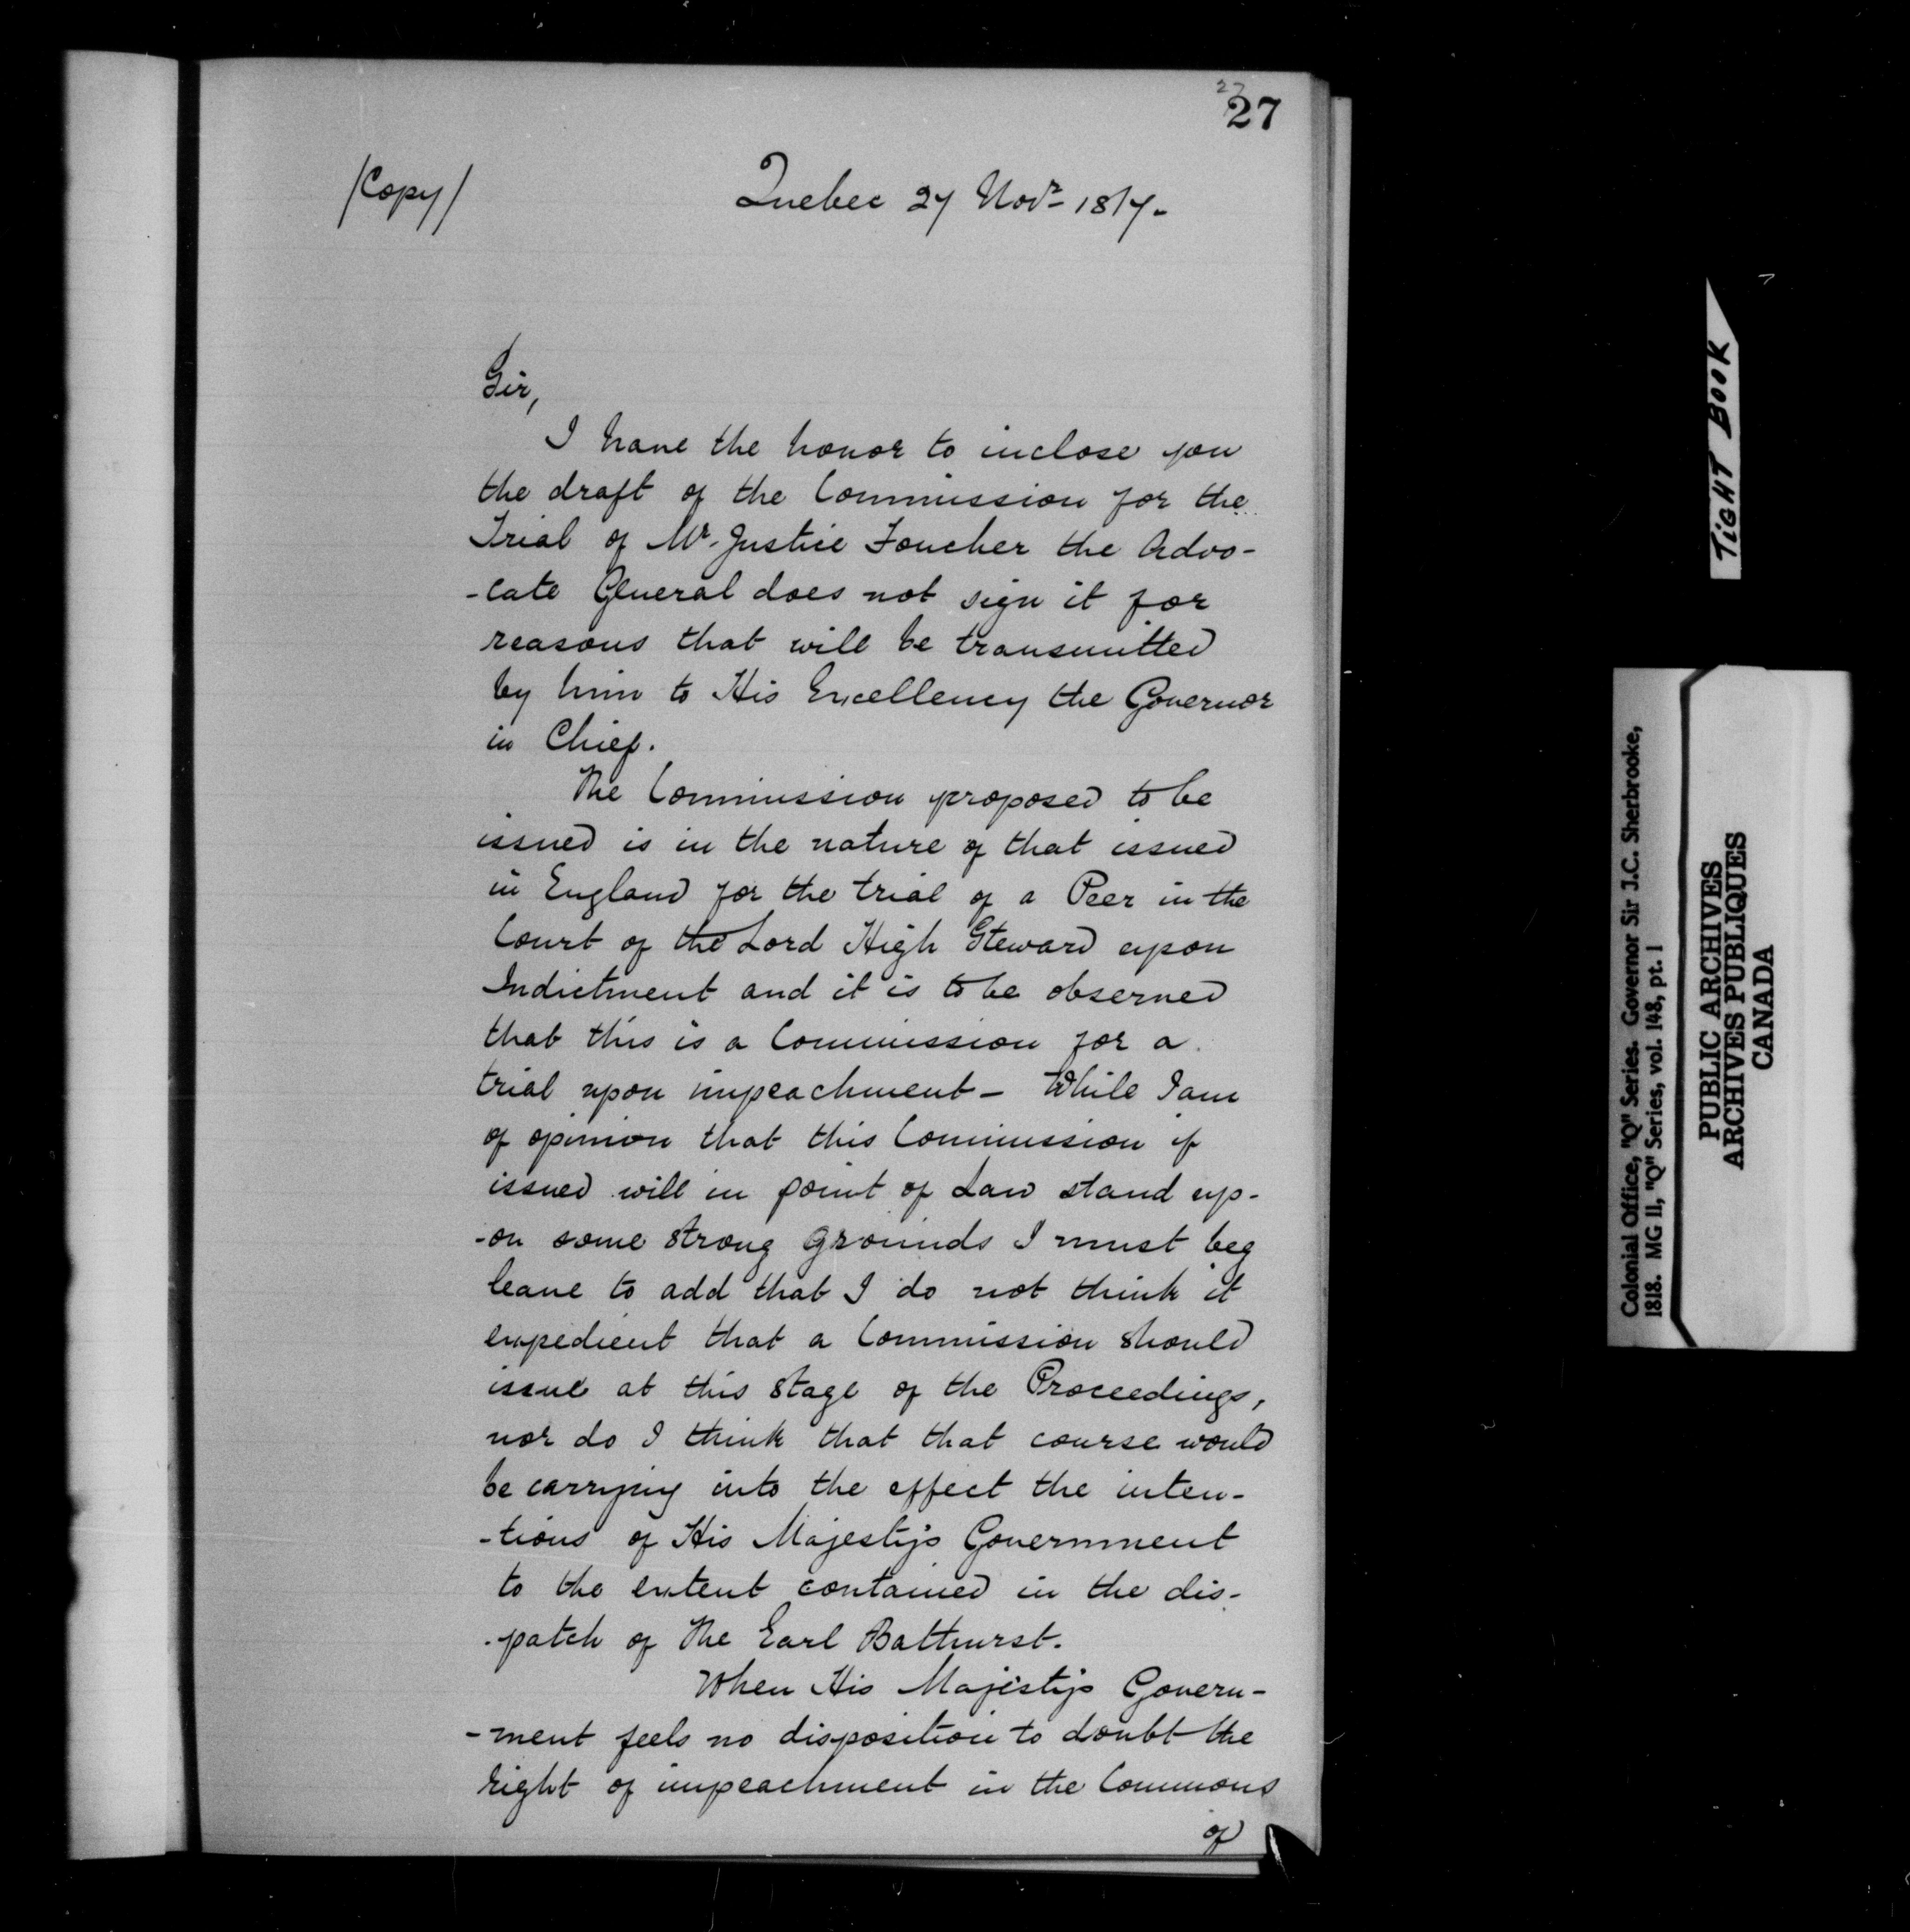 27
27
/Copy/
Quebec 27 Novr 1817-
Sir,
I have the honor to inclose you
the draft of the Commission for the
Trial of Mr. Justice Foucher the Advo-
-cate General does not sign it for
reasons that will be transmitted
by him to His Excellency the Governor
in Chief.
The Commission proposed to be
issued is in the nature of that issued
in England for the trial of a Peer in the
Court of the Lord High Steward upon
Indictment and it is to be observed
that this is a Commission for a
trial upon impeachment - While I am
of opinion that this Commission if
issued will in point of Law stand up-
-on some strong grounds I must beg
leave to add that I do not think it
expedient that a Commission should
issue at this stage of the Proceedings,
nor do I think that that course would
be carrying into the effect the inten-
-tions of His Majesty's Government
to the extent contained in the dis-
-patch of The Earl Bathurst.
When His Majesty's Govern-
-ment feels no disposition to doubt the
right of impeachment in the Commons
of
TIGHT BOOK
Colonial Office, "Q" Series. Governor Sir J.C. Sherbrooke,
1818. MG 11, "Q" Series, vol. 148, pt. 1
PUBLIC ARCHIVES
ARCHIVES PUBLIQUES
CANADA